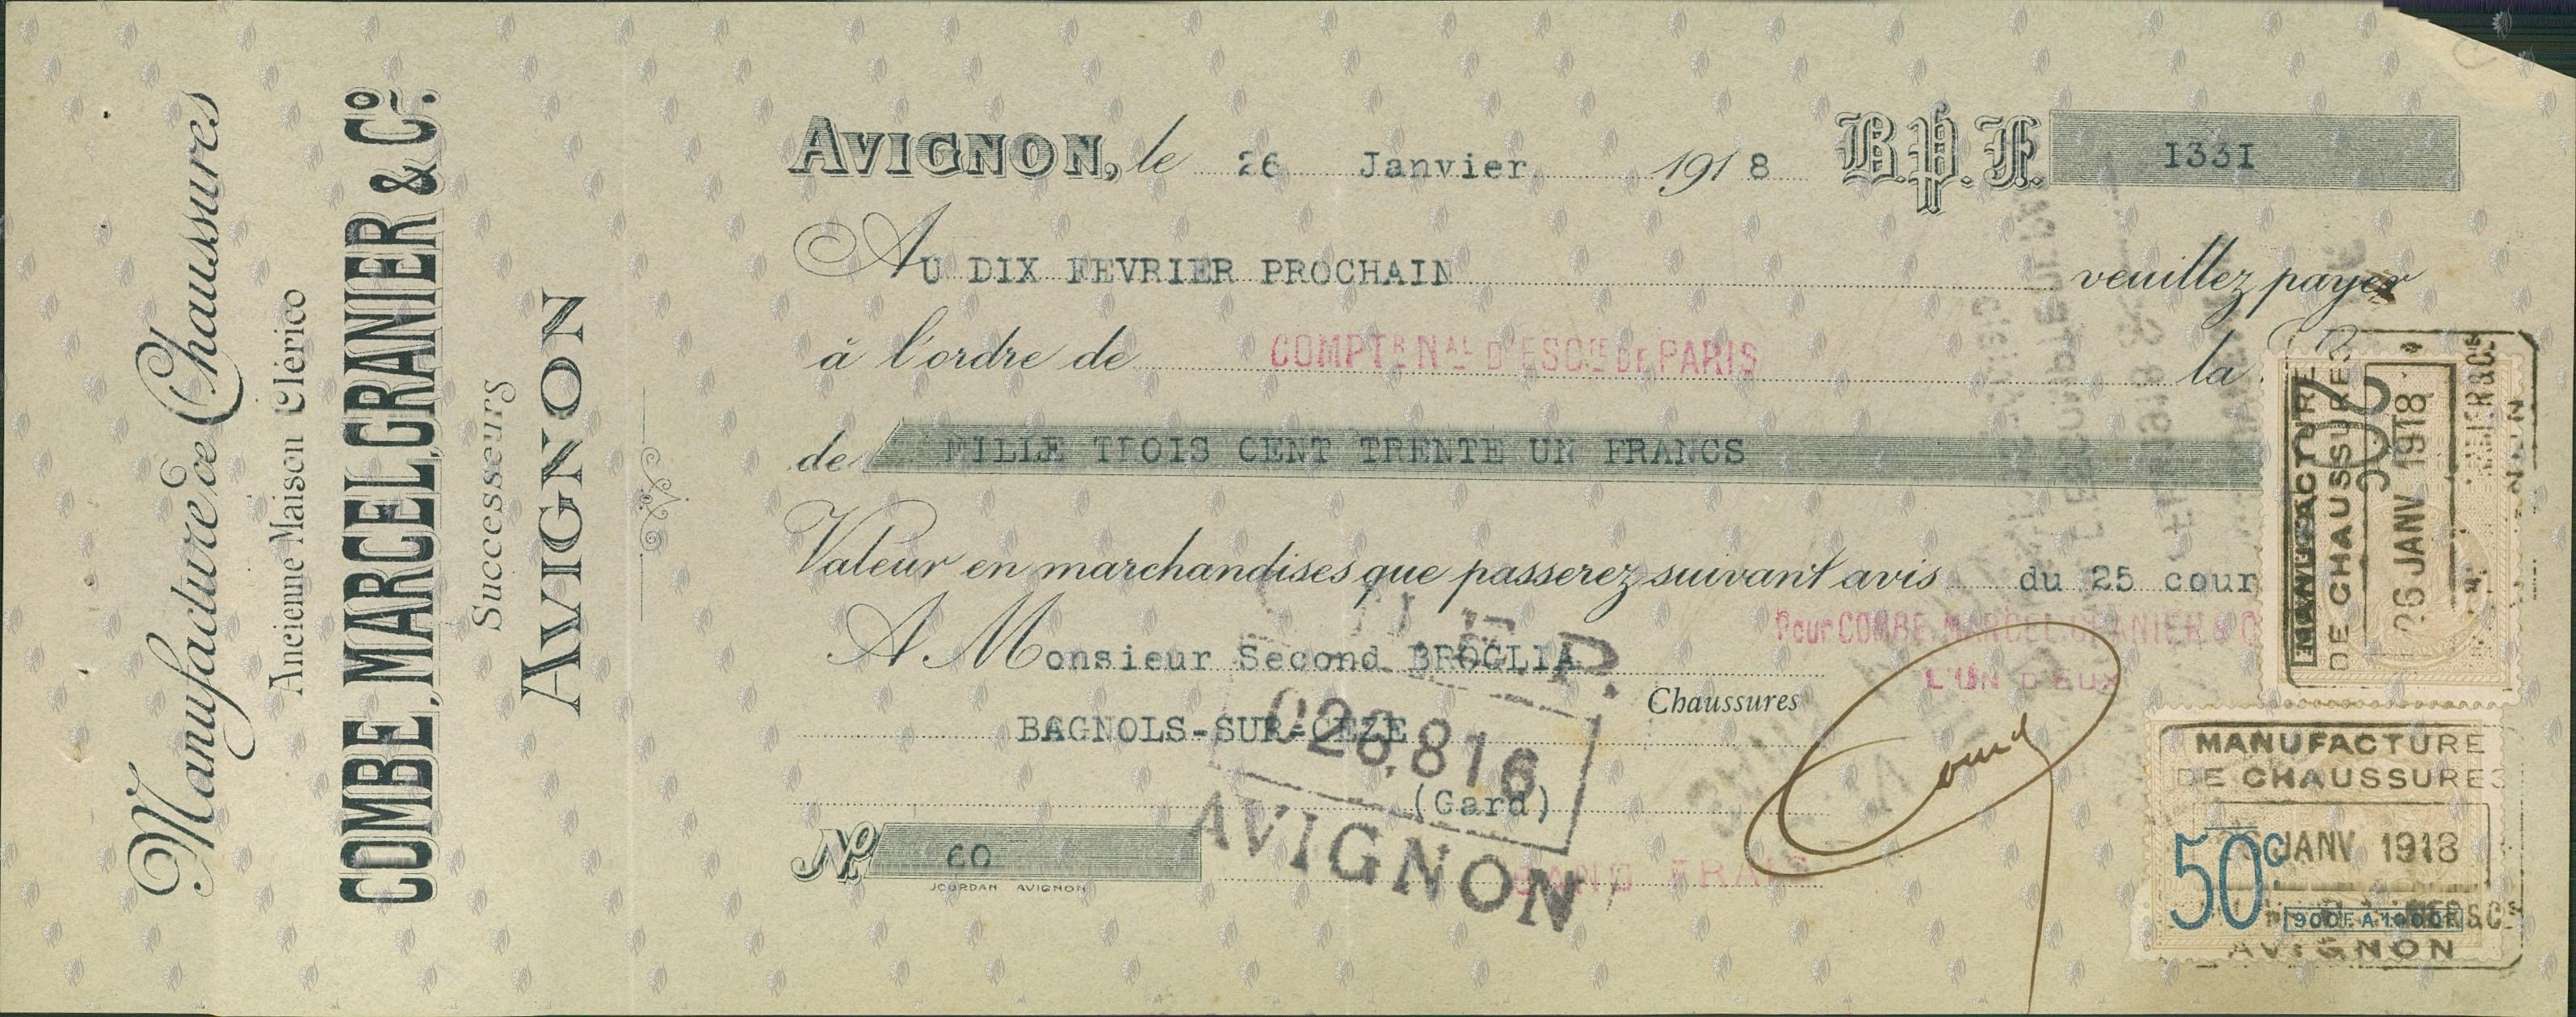 Manufacture de Chaussures
Ancienne Maison Clérico
COMBE, MARCEL, GRANIER & Cº.
Successeurs
AVIGNON
AVIGNON, le 26 Janvier 1918 B.P.F. I33I
AU DIX FEVRIER PROCHAIN veuillez payer
à l'ordre de COMPTR NAL D'ESCTE DE PARIS la
de MILLE TROIS CENT TRENTE UN FRANCS
Valeur en marchandises que passerez suivant avis du 25 cour
Pour COMBE, MARCEL, GRANIER & C
L'UN D'EUX
A Monsieur Second BROGLIA
Chaussures
BAGNOLS-SUR-CEZE
(Gard)
Nº 60
JOURDAN AVIGNON
SANS FRAIS
026,816
AVIGNON
MANUFACTURE
DE CHAUSSURES
26 JANV 1918
MANUFACTURE
DE CHAUSSURES
JANV 1918
50c
AVIGNON